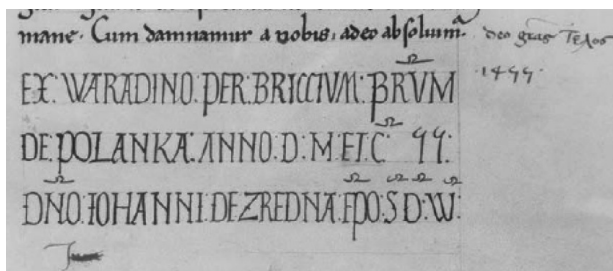 mane. Cum damnamur a vobis, adeo absoluim̃. deo gr̃as Τελος
.1455.
EX: WARADINO: PER: BRICCIUM: PRVM
DE: POLANKA: ANNO: D: M: ET C̃ 55:
DN̄O: IOHANNI: DE ZREDNA: EPŌ: S̄ D̄: W̄: